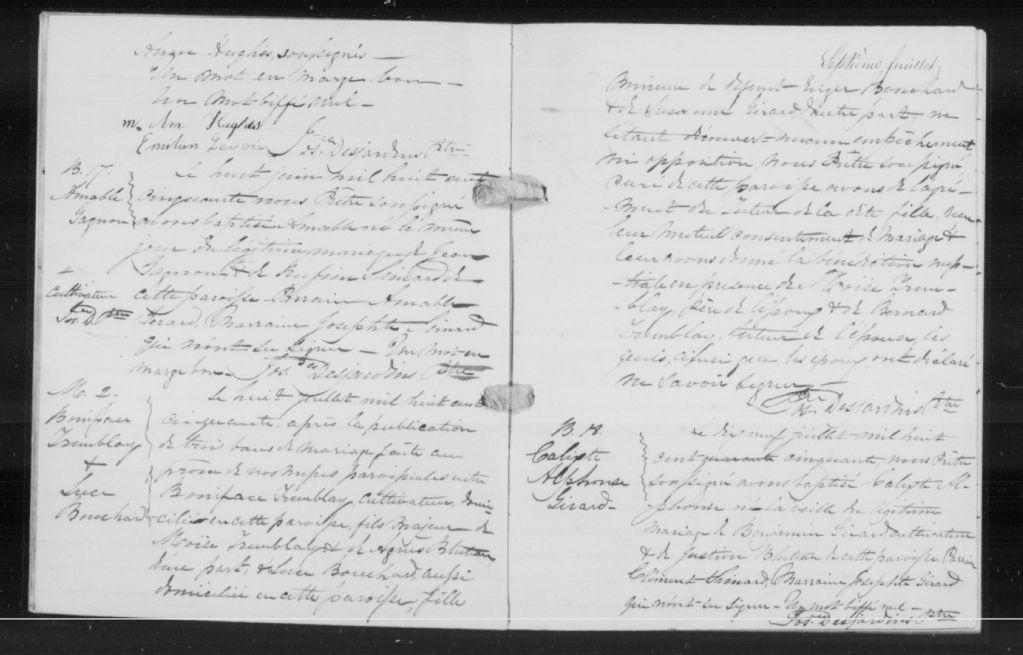 Anon Hughes, soussignés —
Un mot en marge bon —
Un mot biffé nul —
Ann Hughes
Emilien Savoie Jos. Desjardins Ptre
B. 17.
Amable
Gagnon
Le huit juin mil huit cent
cinquante nous Prêtre soussigné
avons baptisé Amable né le même
jour du légitime mariage de Jean
Gagnon & de Simard de
+
cultivateur
Jos. D. Ptre
cette paroisse. Parrain Amable
Girard, Marraine Josephte Simard
qui n'ont su signer — Un mot en
marge bon — Jos. Desjardins Ptre
M. 2.
Boniface
Tremblay
&
Luce
Bouchard
Le huit juillet mil huit cent
cinquante, après la publication
de trois bans de mariage faite au
prône de nos messes paroissiales entre
Boniface Tremblay, cultivateur, domi-
cilié en cette paroisse, fils majeur de
Moïse Tremblay & de Agnès
d'une part, & Luce Bouchard, aussi
domiciliée en cette paroisse, fille
Septième feuillet
mineure de défunt Roger Bouchard
& de Susanne Girard d'autre part, ne
s'étant découvert aucun empêchement
ni opposition, nous Prêtre soussigné
curé de cette paroisse avons de l'agré-
ment du Tuteur de la dite fille, reçu
leur mutuel consentement de Mariage &
leur avons donné la bénédiction nup-
-tiale en présence de Moïse Trem-
blay, Père de l'époux & de Bernard
Tremblay, tuteur de l'épouse, les
quels, ainsi que les époux ont déclaré
ne savoir signer —
Jos. Desjardins Ptre
B. 18.
Calixte
Alphonse
Girard
Le dix neuf juillet mil huit
cent quarante cinquante, nous Prêtre
soussigné avons baptisé Calixte Al-
phonse né la veille du légitime
mariage de Benjamin Girard cultivateur
& de Justine de cette paroisse Parrain
Clément Simard, Marraine Josephte Girard
qui n'ont su signer — Un mot biffé nul —
Jos. Desjardins Ptre